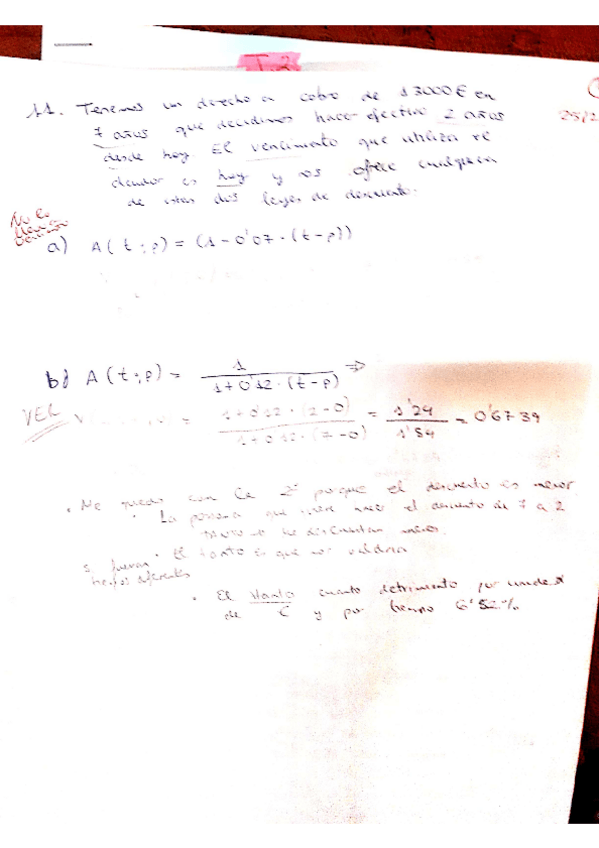 T.2
11. Tenemos un derecho a cobro de 13000€ en
7 años que decidimos hacer efectivo 2 años
desde hoy El vencimiento que utiliza el
deudor es hoy y nos ofrece cualquiera
de estas dos leyes de descuento.
No lo
a) A(t;p) = (1-0'07·(t-p))
b) A(t;p) = 1 / 1+0'12·(t-p) ⇒
VER = 1+0'12·(2-0) / 1+0'12·(7-0) = 1'24 / 1'84 = 0'6739
· Me quedo con la 2ª porque el descuento es menor
· La persona que quiere hacer el descuento de 7 a 2
le descuentan menos
si fueran · El tanto es que nos valdría
tiempos diferentes
· El tanto cuanto detrimento por unidad
de € y por tiempo 6'52%